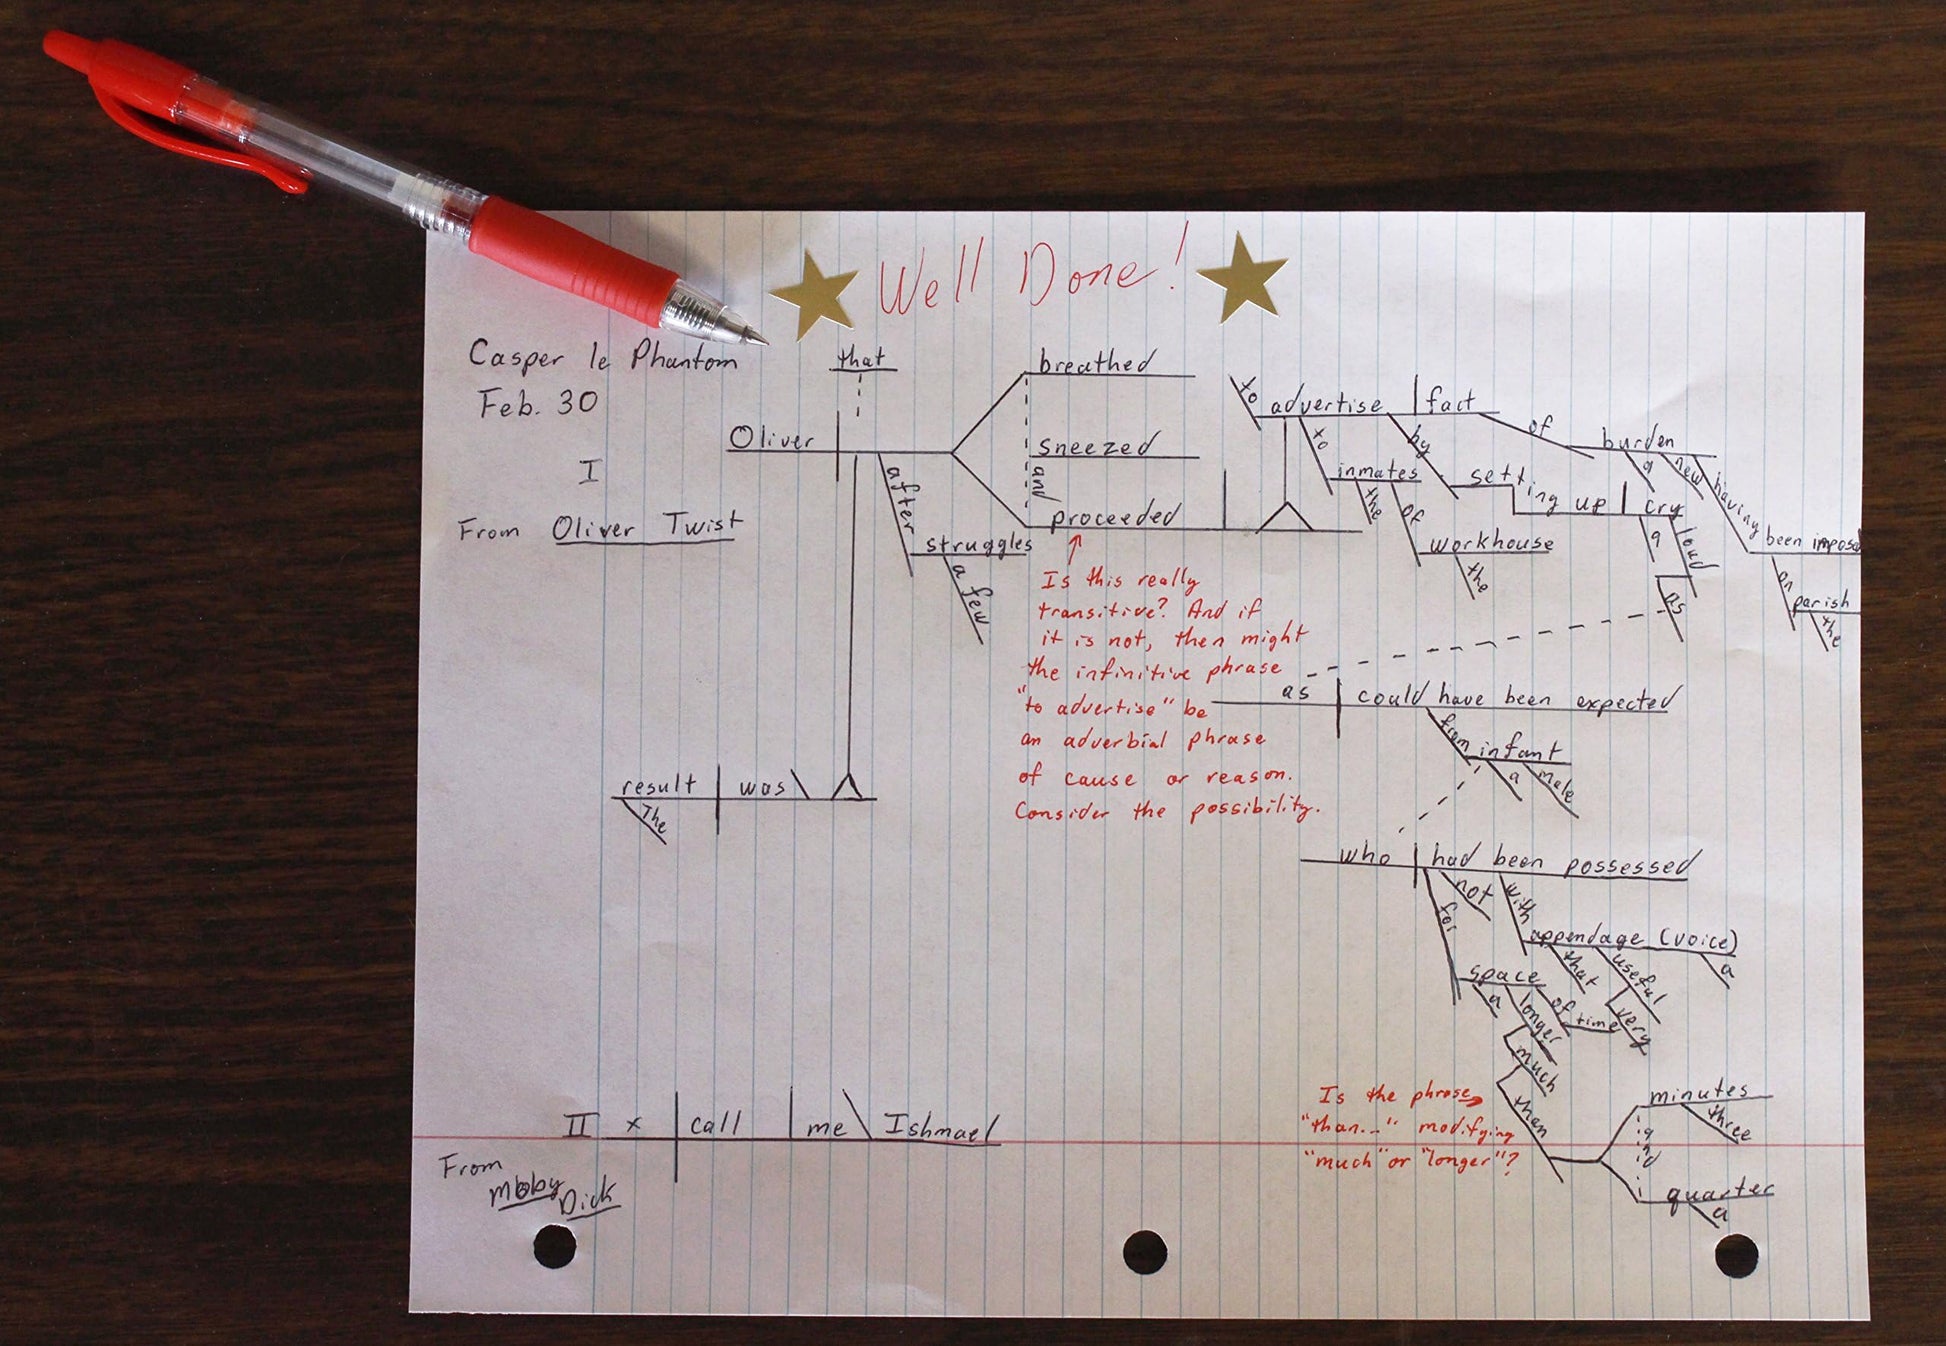 Well Done!
Casper le Phantom
Feb. 30
I
From Oliver Twist
that
Oliver
breathed
sneezed
and
proceeded
after
struggles
a few
to
advertise
fact
of
burden
a
new
having
been impose
on
parish
the
to
inmates
the
of
workhouse
the
by
setting up
cry
a
loud
as
as
could have been expected
from
infant
a
male
who
had been possessed
for
not
with
appendage (voice)
that
useful
a
very
space
a
longer
of
time
much
than
minutes
three
and
quarter
a
result
was
The
Is this really
transitive? And if
it is not, then might
the infinitive phrase
"to advertise" be
an adverbial phrase
of cause or reason.
Consider the possibility.
Is the phrase
"than..." modifying
"much" or "longer"?
II
x
call
me
Ishmael
From
Moby
Dick